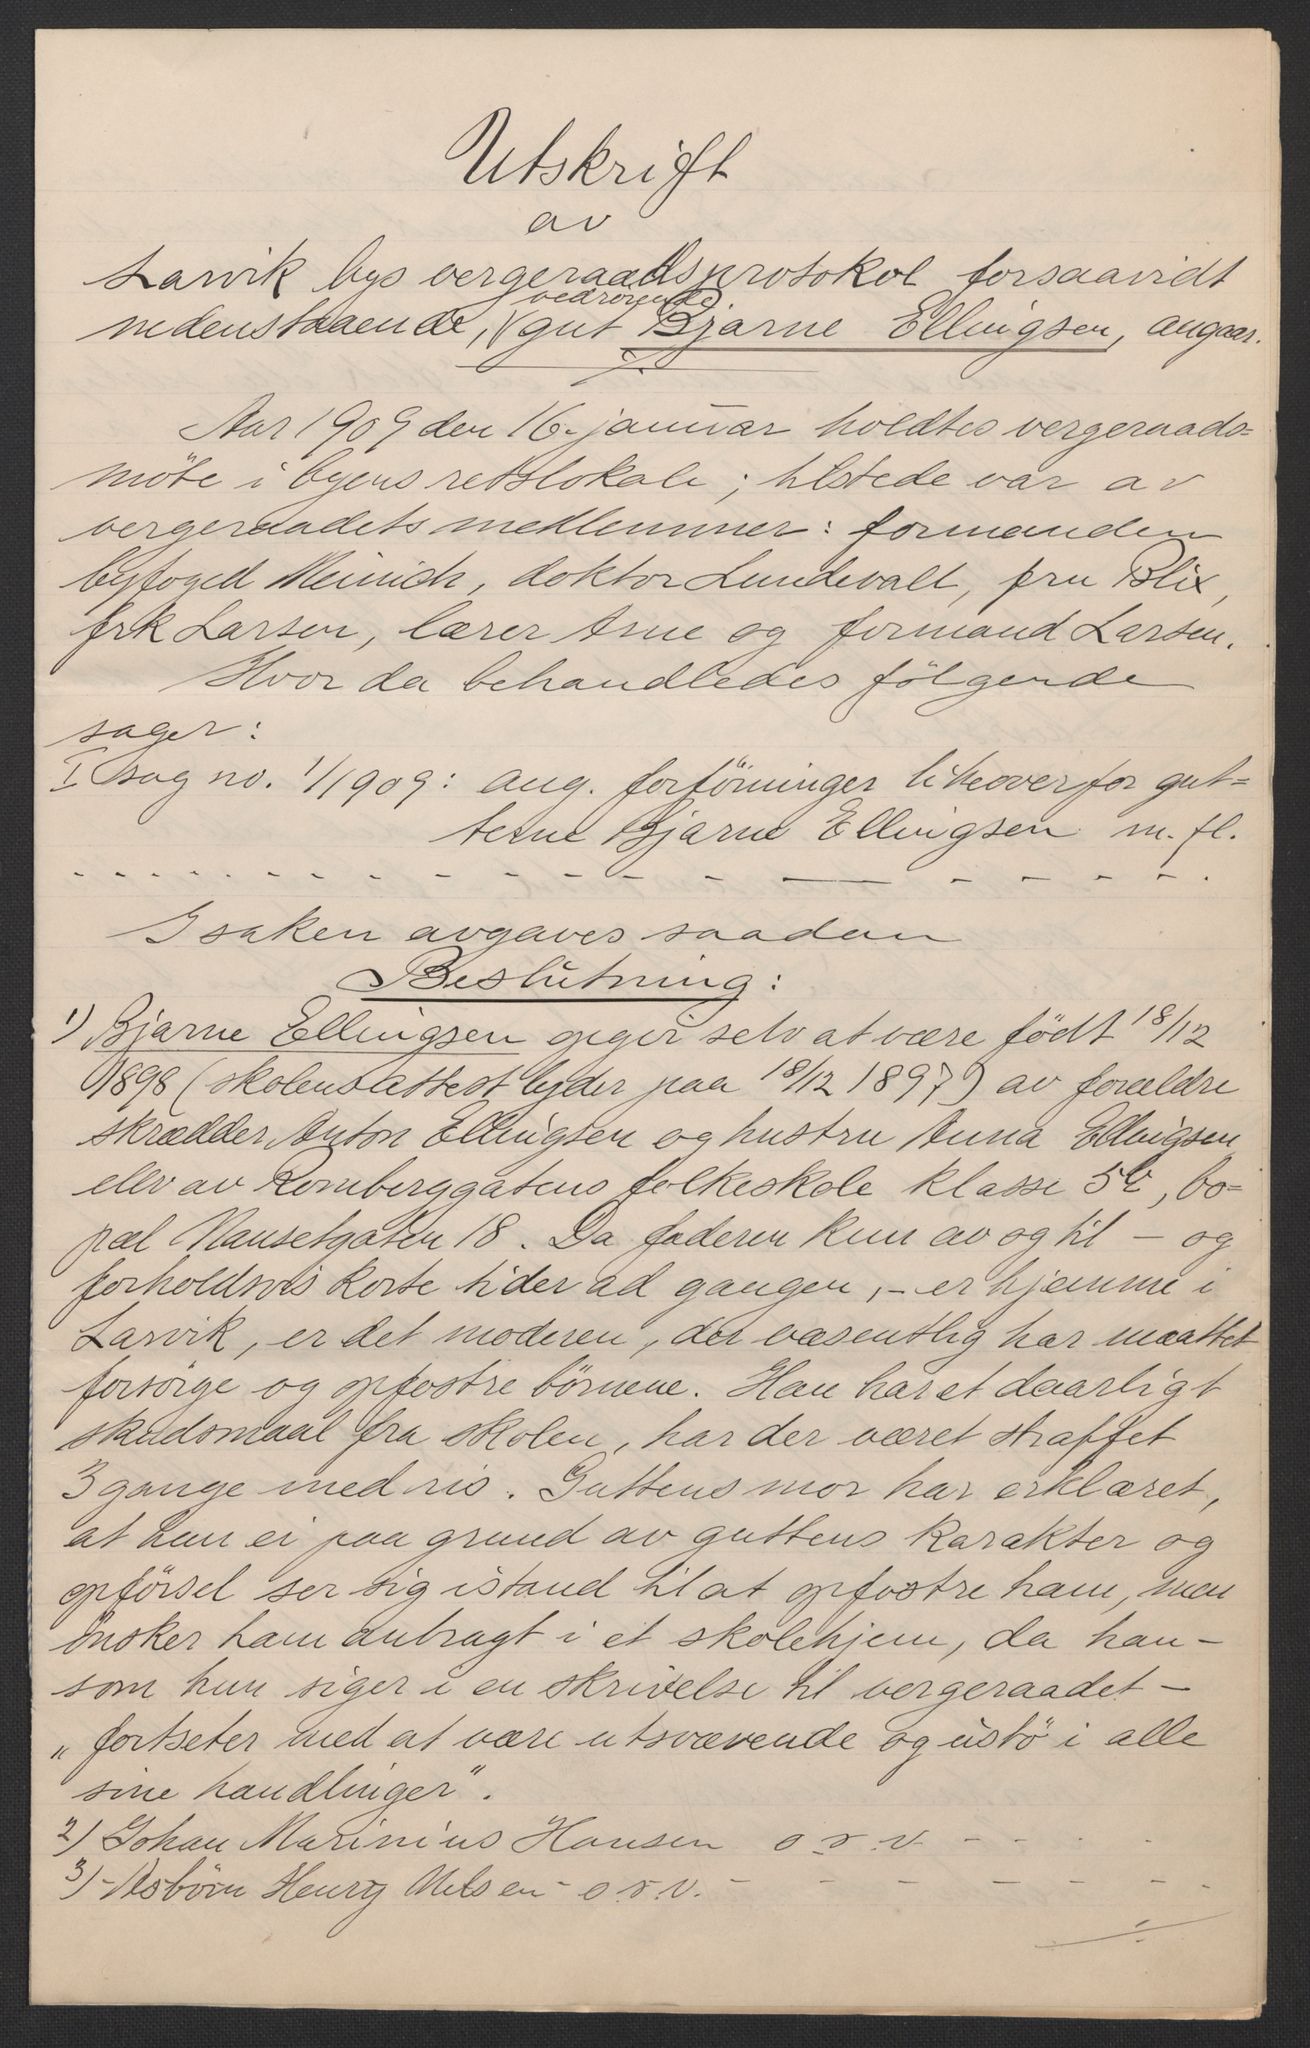 Utskrift
av
Larvik bys vergeraadsprotokol forsaavidt
nedenstaaende, vedrörende gut Bjarne Ellingsen, angaar.
Aar 1909 den 16. januar holdtes vergeraads=
möte i byens retslokale; tilstede var av
vergeraadets medlemmer: formanden
byfoged Meinich, doktor Lundevall, fru Blix,
frk Larsen, lærer Arne og formand Larsen.
Hvor da behandledes fölgende
sager:
I sag no. 1/1909: ang. forföininger likeoverfor gut=
terne Bjarne Ellingsen m. fl.
I saken avgaves saadan
Beslutning:
1) Bjarne Ellingsen opgir selv at være födt 18/12
1898 (skolens attest lyder paa 18/12 1897) av forældre
skrædder Anton Ellingsen og hustru Anna Ellingsen
elev av Romberggatens folkeskole klasse 5b, bo=
pæl Nansetgaten 18. Da faderen kun av og til – og
forholdsvis korte tider ad gangen, – er hjemme i
Larvik, er det moderen, der væsentlig har maattet
forsörge og opfostre börnene. Han har et daarligt
skudsmaal fra skolen, har der været straffet
3 gange med ris. Guttens mor har erklæret,
at hun ei paa grund av guttens karakter og
opförsel ser sig istand til at opfostre ham, men
önsker ham anbragt i et skolehjem, da han –
som hun siger i en skrivelse til vergeraadet –
„fortseter med at være utsvævende og ustö i alle
sine handlinger".
2) Johan Marinius Hansen o. s. v. - - - -
3) - Asbörn Henry Nilsen - o. s. v. - - - - - - -